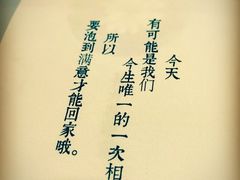 今天
有可能是我们
今生唯一的一次相
所以
要泡到满意才能回家哦。